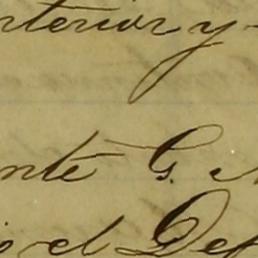 nterior y
nte G.
el Def